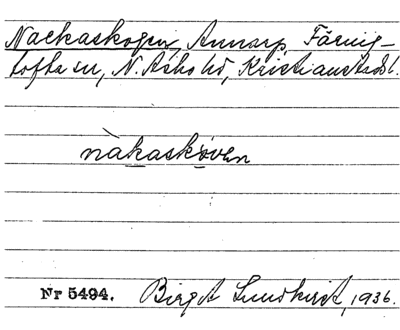 Nackaskogen, Annarp, Färing-
tofta sn, N. Åsbo hd, Kristianstads l.
nàkaskòven
Nr 5494. Birgit Lundkvist, 1936.